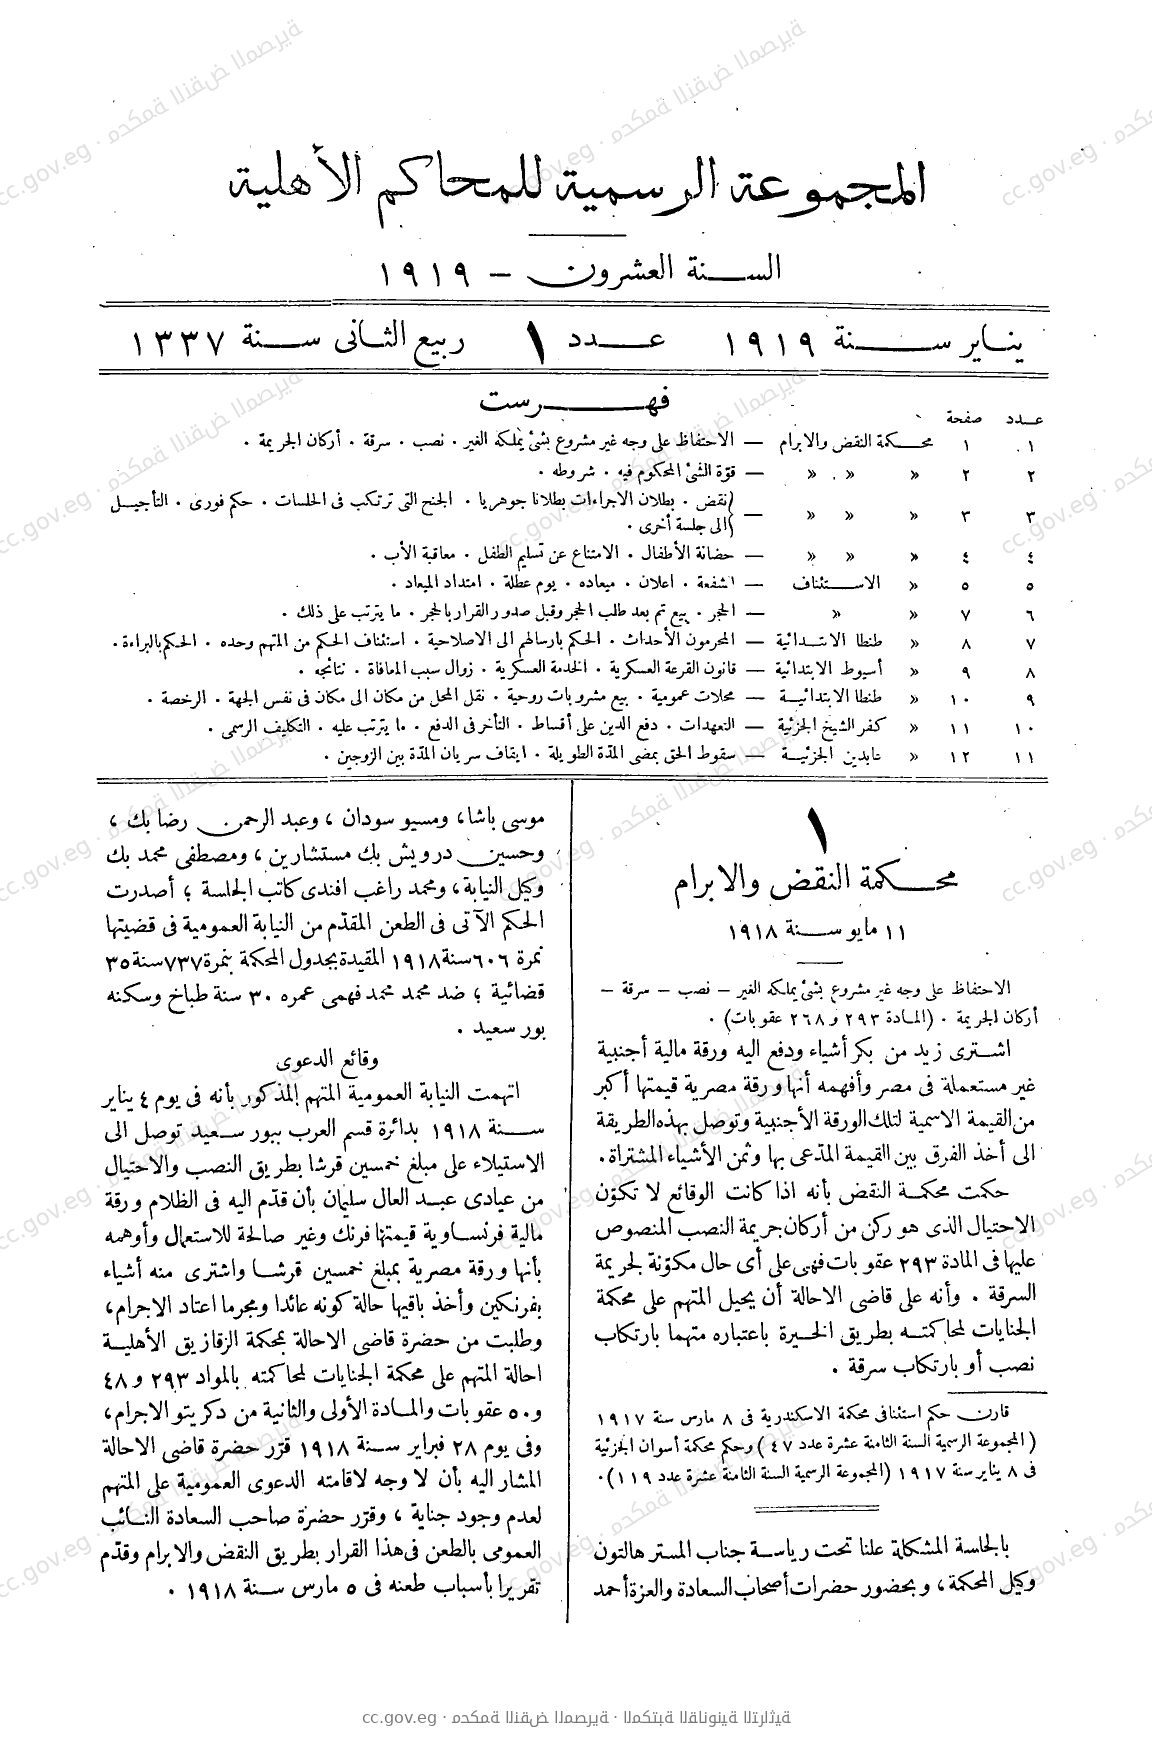 المجموعة الرسمية للمحاكم الأهلية
السنة العشرون – ١٩١٩
يناير سنة ١٩١٩ عدد ١ ربيع الثانى سنة ١٣٣٧
فهرست
عدد صفحة
١ ١ محكمة النقض والابرام — الاحتفاظ على وجه غير مشروع بشئ يملكه الغير . نصب . سرقة . أركان الجريمة .
٢ ٢ » » » — قوة الشئ المحكوم فيه . شروطه .
٣ ٣ » » » — نقض . بطلان الاجراءات بطلانا جوهريا . الجنح التى ترتكب فى الجلسات . حكم فورى . التأجيل
الى جلسة أخرى .
٤ ٤ » » » — حضانة الأطفال . الامتناع عن تسليم الطفل . معاقبة الأب .
٥ ٥ » الاستئناف — شفعة . اعلان . ميعاده . يوم عطلة . امتداد الميعاد .
٦ ٧ » » — الحجر . بيع تم بعد طلب الحجر وقبل صدور القرار بالحجر . ما يترتب على ذلك .
٧ ٨ » طنطا الابتدائية — المجرمون الأحداث . الحكم بارسالهم الى الاصلاحية . استئناف الحكم من المتهم وحده . الحكم بالبراءة .
٨ ٩ » أسيوط الابتدائية — قانون القرعة العسكرية . الخدمة العسكرية . زوال سبب المعافاة . نتائجه .
٩ ١٠ » طنطا الابتدائية — محلات عمومية . بيع مشروبات روحية . نقل المحل من مكان الى مكان فى نفس الجهة . الرخصة .
١٠ ١١ » كفر الشيخ الجزئية — التعهدات . دفع الدين على أقساط . التأخر فى الدفع . ما يترتب عليه . التكليف الرسمى .
١١ ١٢ » عابدين الجزئية — سقوط الحق بمضى المدة الطويلة . ايقاف سريان المدة بين الزوجين .
١
محكمة النقض والابرام
١١ مايو سنة ١٩١٨
الاحتفاظ على وجه غير مشروع بشئ يملكه الغير – نصب – سرقة –
أركان الجريمة . (المادة ٢٩٣ و ٢٦٨ عقوبات) .
اشترى زيد من بكر أشياء ودفع اليه ورقة مالية أجنبية
غير مستعملة فى مصر وأفهمه أنها ورقة مصرية قيمتها أكبر
من القيمة الاسمية لتلك الورقة الأجنبية وتوصل بهذه الطريقة
الى أخذ الفرق بين القيمة المدّعى بها وثمن الأشياء المشتراة.
حكمت محكمة النقض بأنه اذا كانت الوقائع لا تكوّن
الاحتيال الذى هو ركن من أركان جريمة النصب المنصوص
عليها فى المادة ٢٩٣ عقوبات فهى على أى حال مكوّنة لجريمة
السرقة . وأنه على قاضى الاحالة أن يحيل المتهم على محكمة
الجنايات لمحاكمته بطريق الخيرة باعتباره متهما بارتكاب
نصب أو بارتكاب سرقة .
قارن حكم استئنافى محكمة الاسكندرية فى ٨ مارس سنة ١٩١٧
(المجموعة الرسمية السنة الثامنة عشرة عدد ٤٧) وحكم محكمة أسوان الجزئية
فى ٨ يناير سنة ١٩١٧ (المجموعة الرسمية السنة الثامنة عشرة عدد ١١٩) .
بالجلسة المشكلة علنا تحت رياسة جناب المستر هالتون
وكيل المحكمة ، وبحضور حضرات أصحاب السعادة والعزة أحمد
موسى باشا ، ومسيو سودان ، وعبد الرحمن رضا بك ،
وحسين درويش بك مستشارين ، ومصطفى محمد بك
وكيل النيابة ، ومحمد راغب افندى كاتب الجلسة ؛ أصدرت
الحكم الآتى فى الطعن المقدّم من النيابة العمومية فى قضيتها
نمرة ٦٠٦ سنة ١٩١٨ المقيدة بجدول المحكمة بنمرة ٧٣٧ سنة ٣٥
قضائية ؛ ضد محمد محمد فهمى عمره ٣٠ سنة طباخ وسكنه
بور سعيد .
وقائع الدعوى
اتهمت النيابة العمومية المتهم المذكور بأنه فى يوم ٤ يناير
سنة ١٩١٨ بدائرة قسم العرب ببور سعيد توصل الى
الاستيلاء على مبلغ خمسين قرشا بطريق النصب والاحتيال
من عيادى عبد العال سليمان بأن قدّم اليه فى الظلام ورقة
مالية فرنساوية قيمتها فرنك وغير صالحة للاستعمال وأوهمه
بأنها ورقة مصرية بمبلغ خمسين قرشا واشترى منه أشياء
بفرنكين وأخذ باقيها حالة كونه عائدا ومجرما اعتاد الاجرام،
وطلبت من حضرة قاضى الاحالة بمحكمة الزقازيق الأهلية
احالة المتهم على محكمة الجنايات لمحاكمته بالمواد ٢٩٣ و ٤٨
و ٥٠ عقوبات والمادة الأولى والثانية من دكريتو الاجرام،
وفى يوم ٢٨ فبراير سنة ١٩١٨ قرّر حضرة قاضى الاحالة
المشار اليه بأن لا وجه لاقامته الدعوى العمومية على المتهم
لعدم وجود جناية ، وقرّر حضرة صاحب السعادة النائب
العمومى بالطعن فى هذا القرار بطريق النقض والابرام وقدّم
تقريرا بأسباب طعنه فى ٥ مارس سنة ١٩١٨ .
cc.gov.eg · محكمة النقض المصرية · المكتبة القانونية التراثية